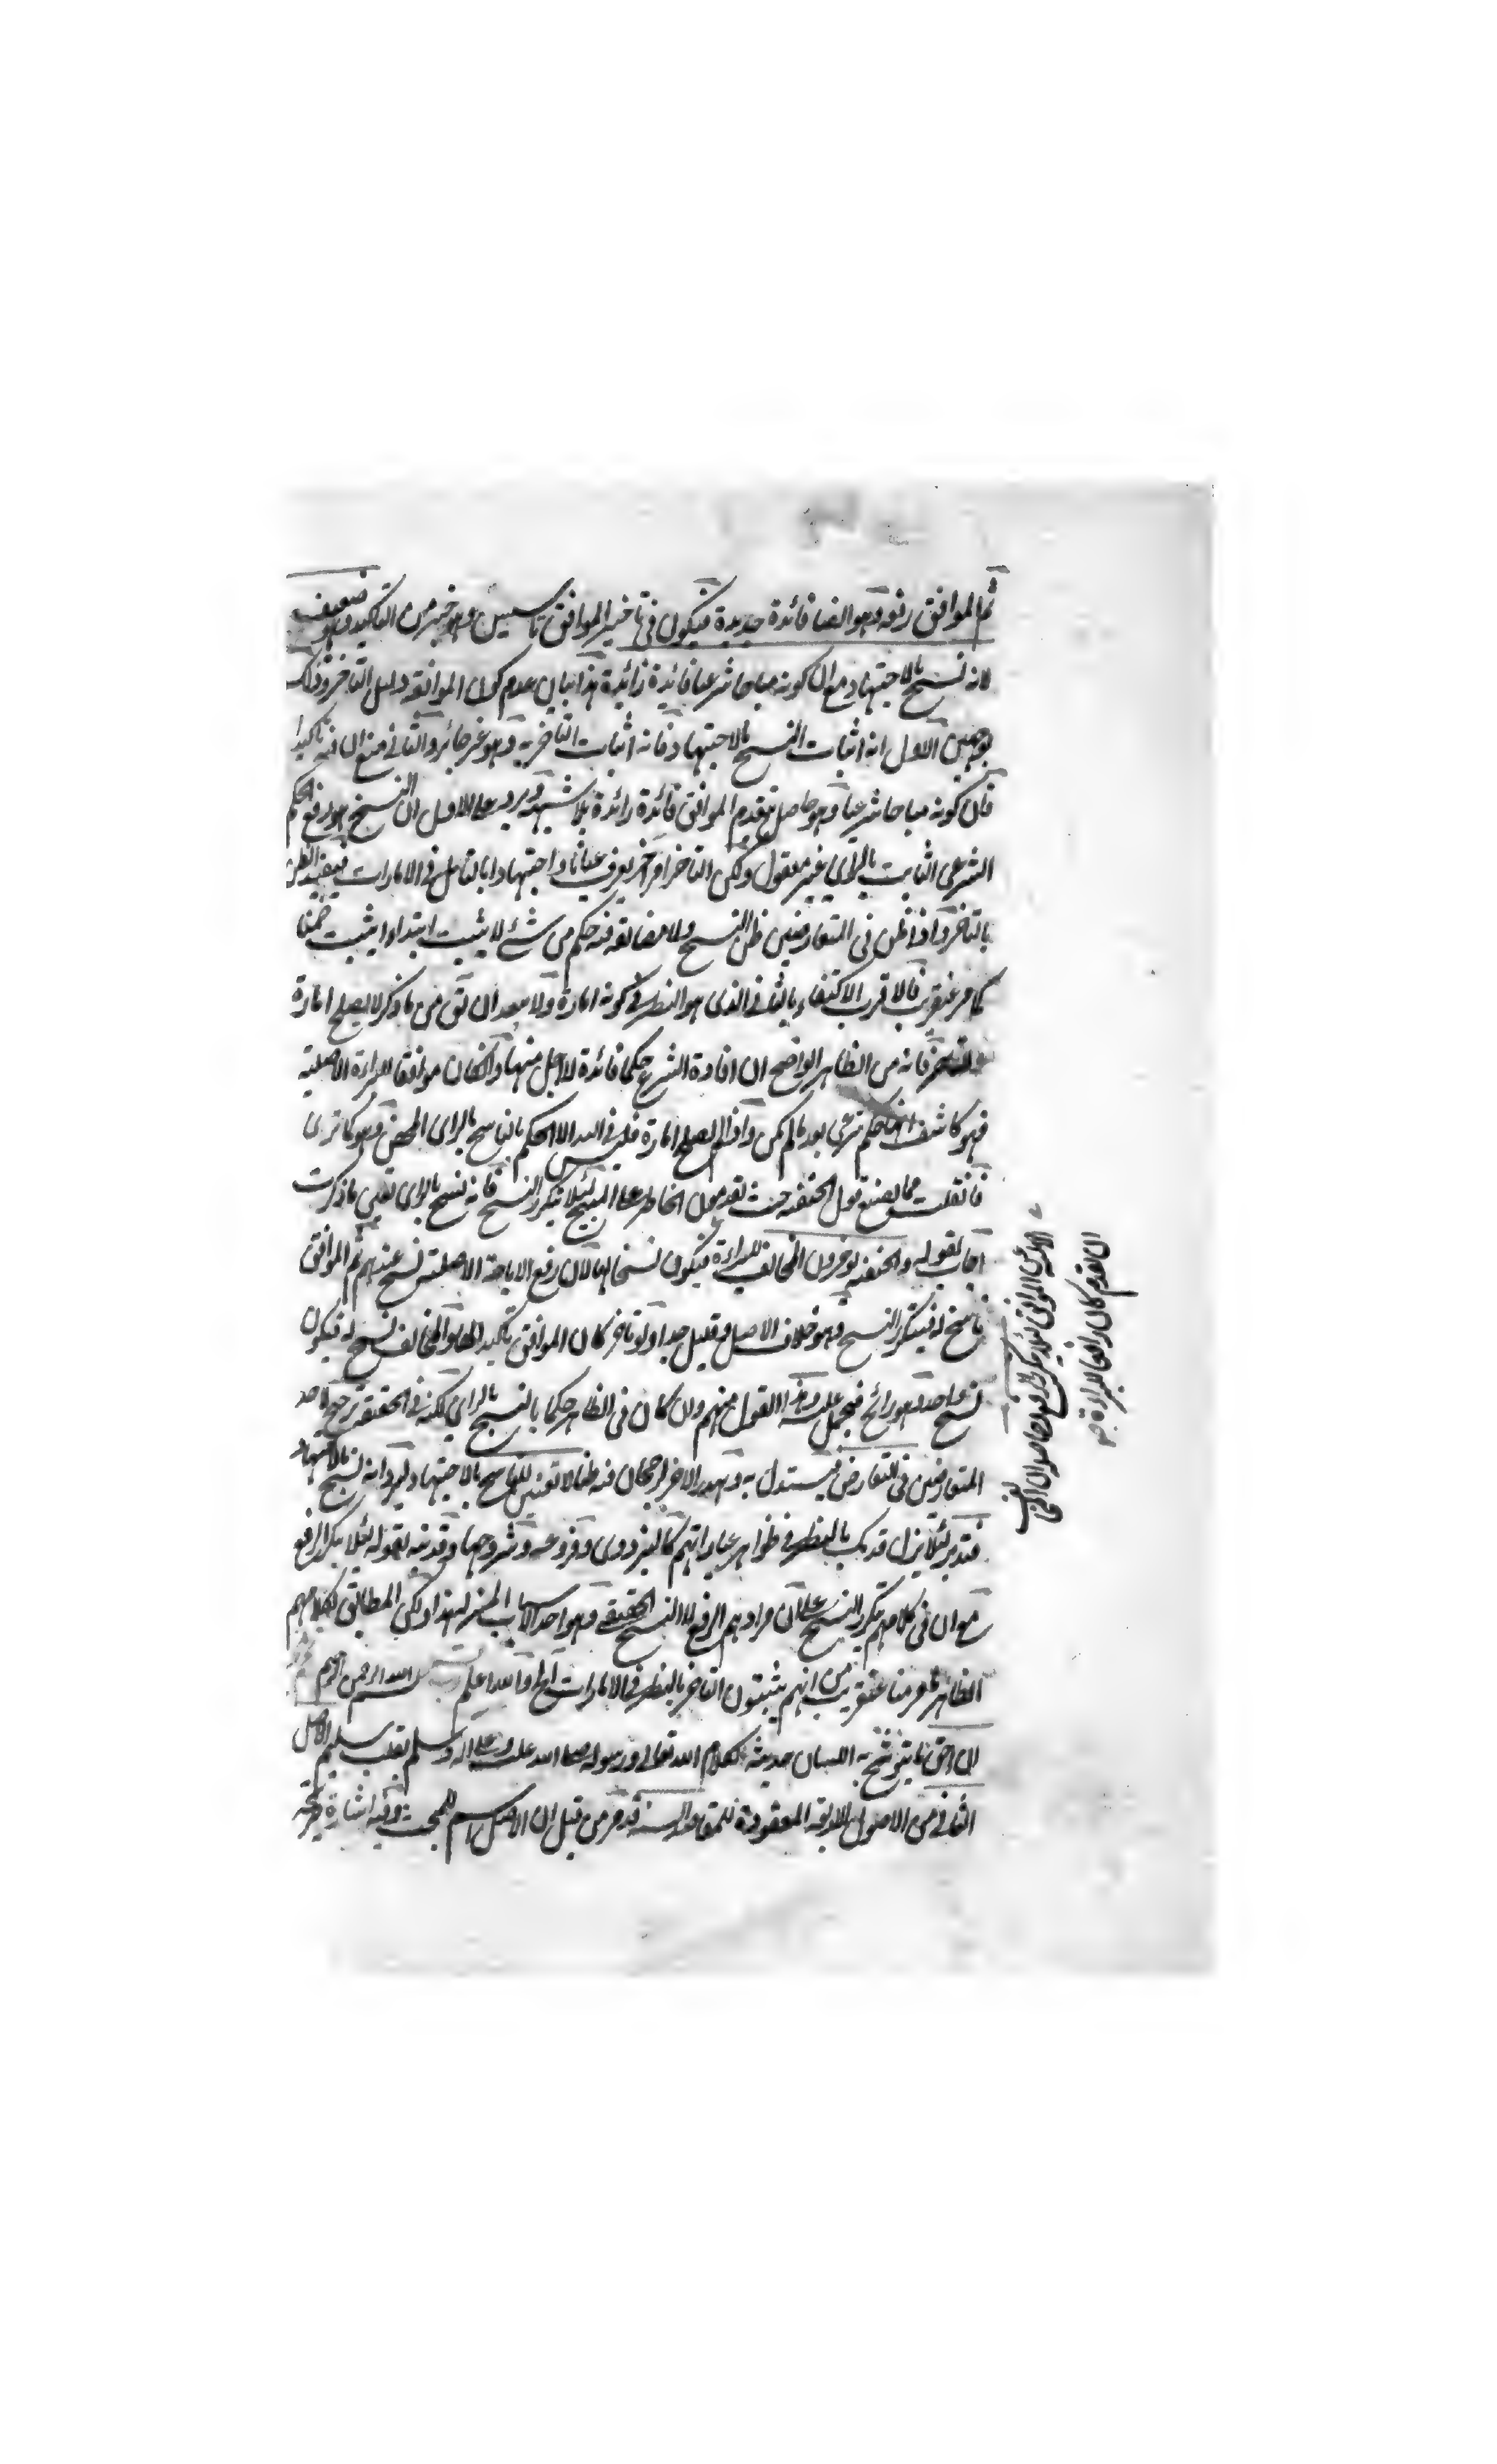 ثم الموافق رفعه وهو ايضا فائدة جديدة فيكون في تاخير الموافق تاسيس وهو خير من التاكيد وهو ضعيف
لانه نسخ بالاجتهاد مع ان كونه مباحا شرعا فائدة زائدة هذا بيان عدم كون الموافقة دليل التاخر وذلك
بوجهين الاول انه اثبات النسخ بالاجتهاد فانه اثبات التاخر به وهو غير جائز والثاني منع ان فيه تاكيدا
فان كونه مباحا شرعا وهو حاصل بتقدم الموافق فائدة زائدة بلا شبهة ويرد على الاول ان النسخ هو رفع الحكم
الشرعي الثابت بالراي غير معقول ولكن التاخر امر اخر يعرف عيانا واجتهادا بالتامل في الامارات فيفيد الظن
بالتاخر واذا ظن في المتعارضين ظن النسخ ولا مضايقة فيه فكم من شئ لا يثبت ابتداء ويثبت ضمنا
كما مر عنقريب فالاقرب الاكتفاء بالثاني الذي هو النظر في كونه امارة ولا يبعد ان من ما ذكر لا يصلح امارة
فانه من الظاهر الواضح ان افادة الشرع حكما فائدة لا اجل منها وان كان موافقا للبراءة الاصلية
فهو كاشف حكم شرعي بعد ما لم يكن واذا لم يصلح امارة فليس في اليد الا الحكم بالناسخ بالراي المحض وهو كما ترى
فان قلت فما يصنع بقول الحنفية حيث يقدمون الحاظر على المبيح لئلا يتكرر النسخ فانه نسخ بالراي على ما ذكرت
اجاب بقوله والحنفية يوخرون المخالف للبراءة فيكون نسخا لها لان رفع الاباحة الاصلية نسخ عندهم ثم الموافق
ناسخ له فيتكرر النسخ وهو خلاف الاصل وقليل جدا ولو تاخر كان الموافق تاكيدا لها والمخالف نسخ له فيكون
نسخ واحد وهو رائج فيحمل عليه وهذا القول منهم وان كان في الظاهر حكما بالنسخ بالراي لكنه في الحقيقة ترجيح لاحد
المتعارضين في التعارض فيستدل به ويهدر الاخر لرجحان فيه ظنا لا تعيين للناسخ بالاجتهاد ليرد انه نسخ بالاجتهاد
فتدبر لئلا يزل قدمك بالنظر في ظواهر عباراتهم كالبزدوي وفروعه وشروحها وقد نبه بقوله لئلا يتكرر الرفع
مع ان في كلامهم تكرر النسخ على ان مرادهم الرفع لا النسخ الحقيقي وهو احد الاسباب لهذا ولكن المطابق لكلامهم
الظاهر ما مر منا عنقريب من انهم يثبتون التاخر بالنظر في الامارات الخ والله اعلم بسم الله الرحمن الرحيم
ان احق ما يترشح به اللسان حديثه كلام الله تعالى ورسوله صلى الله عليه وعلى اله وسلم بقلب سليم الاصل
الثاني من الاصول الاربعة المعقودة للمقاصد السنة قد مر من قبل ان الاصل اسم للمبحث وفيه اشارة